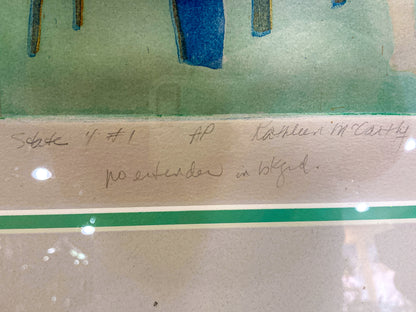 State 4 #1 AP Kathleen McCarthy
no extender in bkgrd.